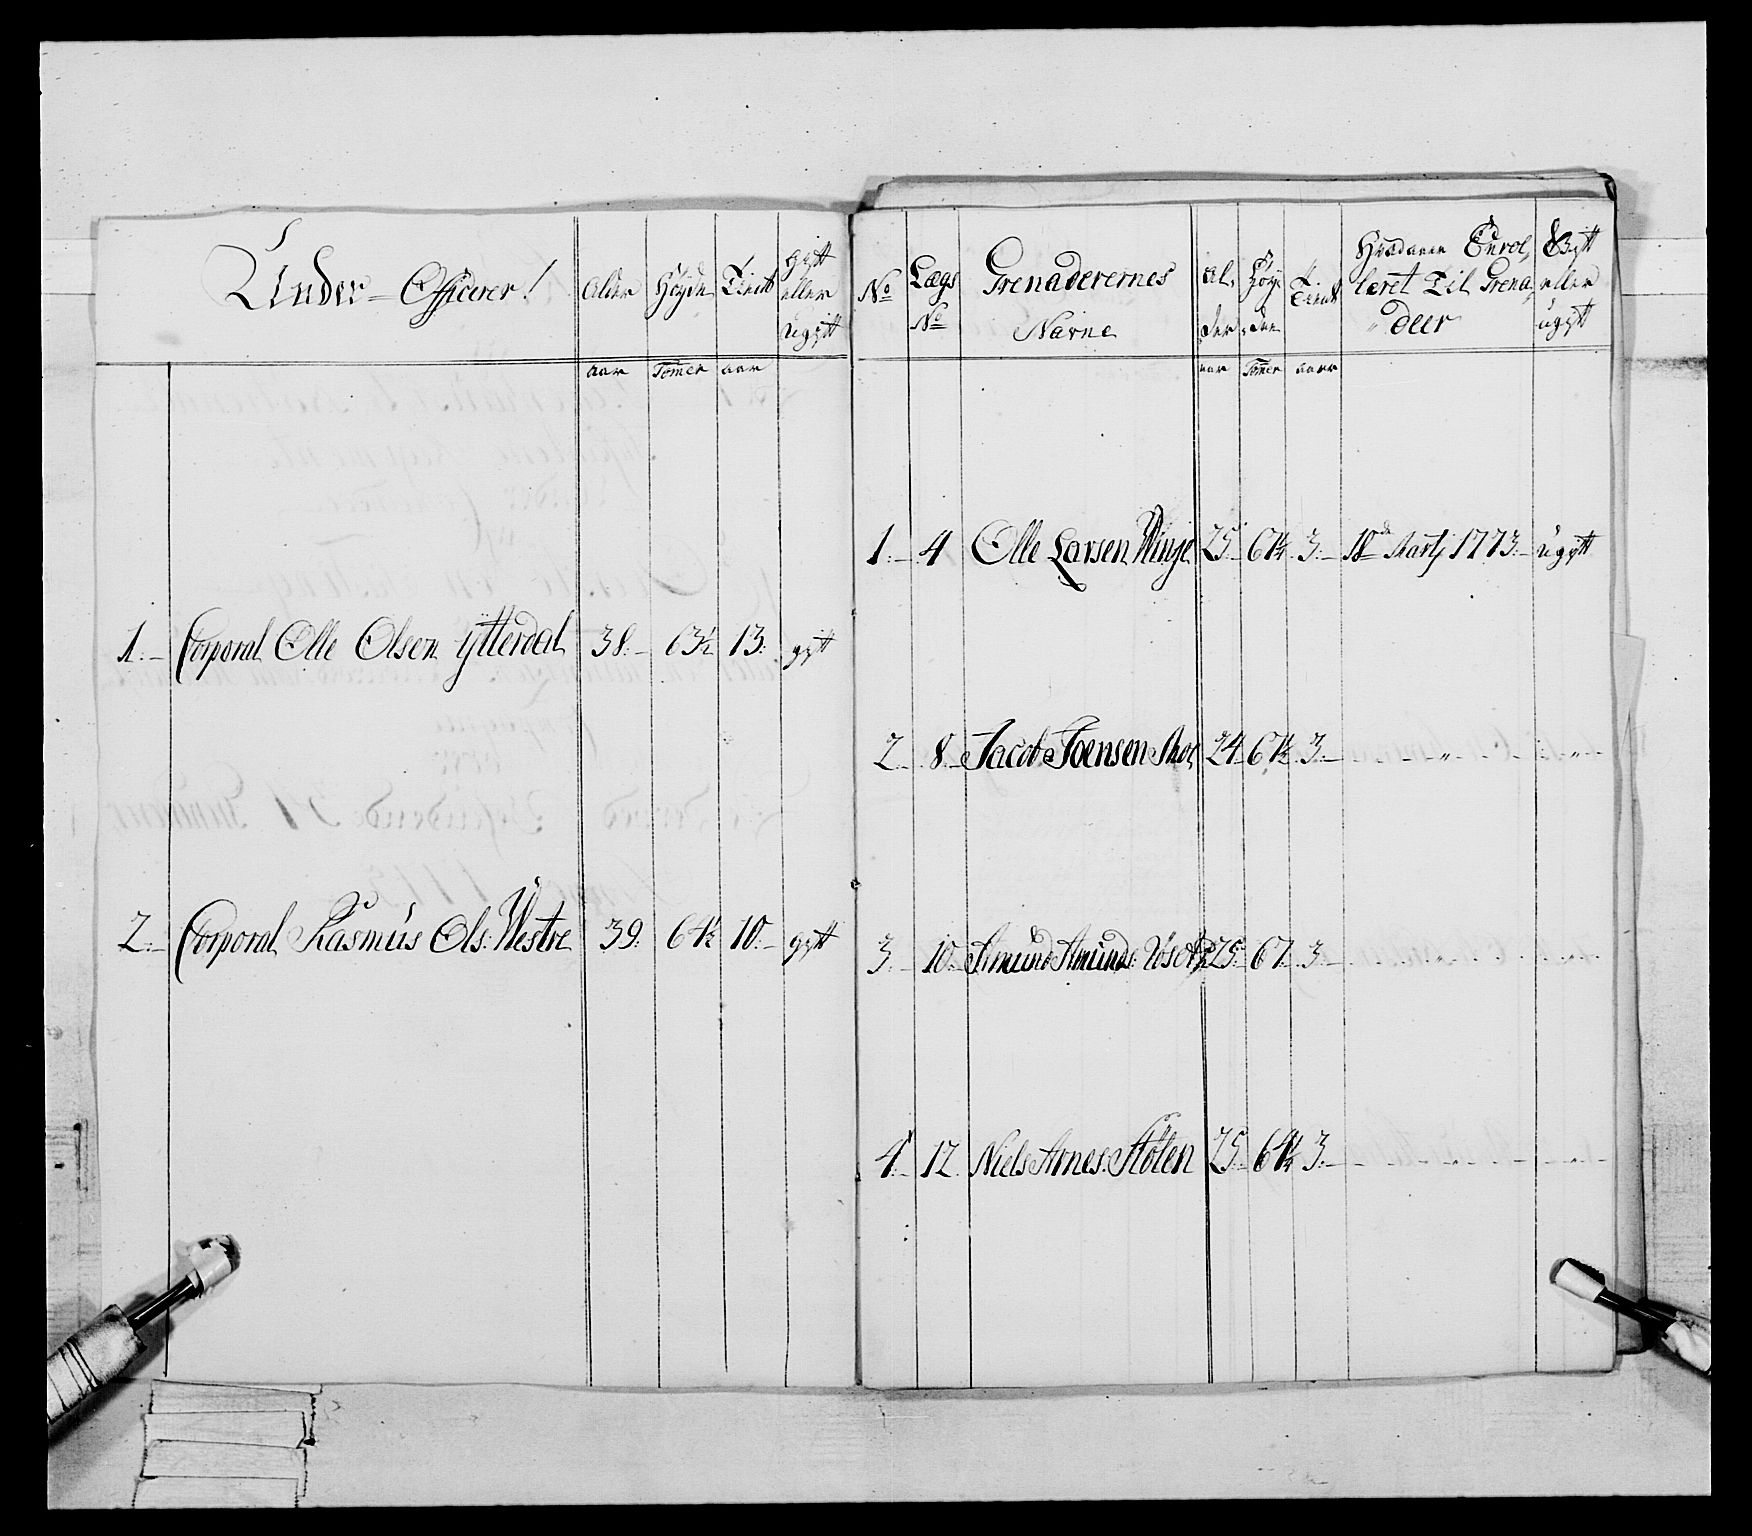 Under-Officerer! Alder Høyde Tient gyt eller ugyt
aar Tomer aar
1. Corporal Olle Olsen Ytterdal 38. 63½ 13. gyt
2. Corporal Rasmus Ols: Westre 39. 64½ 10. gyt
No Lægs No Grenaderernes Navne Al,der Høyden Tient Hvadaar Enrol,læret Til Grena,deer Gyt eller ugyt
aar Tomer aar
1. 4 Olle Larsen Winje 25. 67½ 3. 18de Martj 1773. ugyt
2. 8. Jacob Joensen 24. 67½ 3.
3. 10. Amund Amunds: 25. 67. 3.
4. 12. Niels Arnes: Stølen 25. 64½ 3.